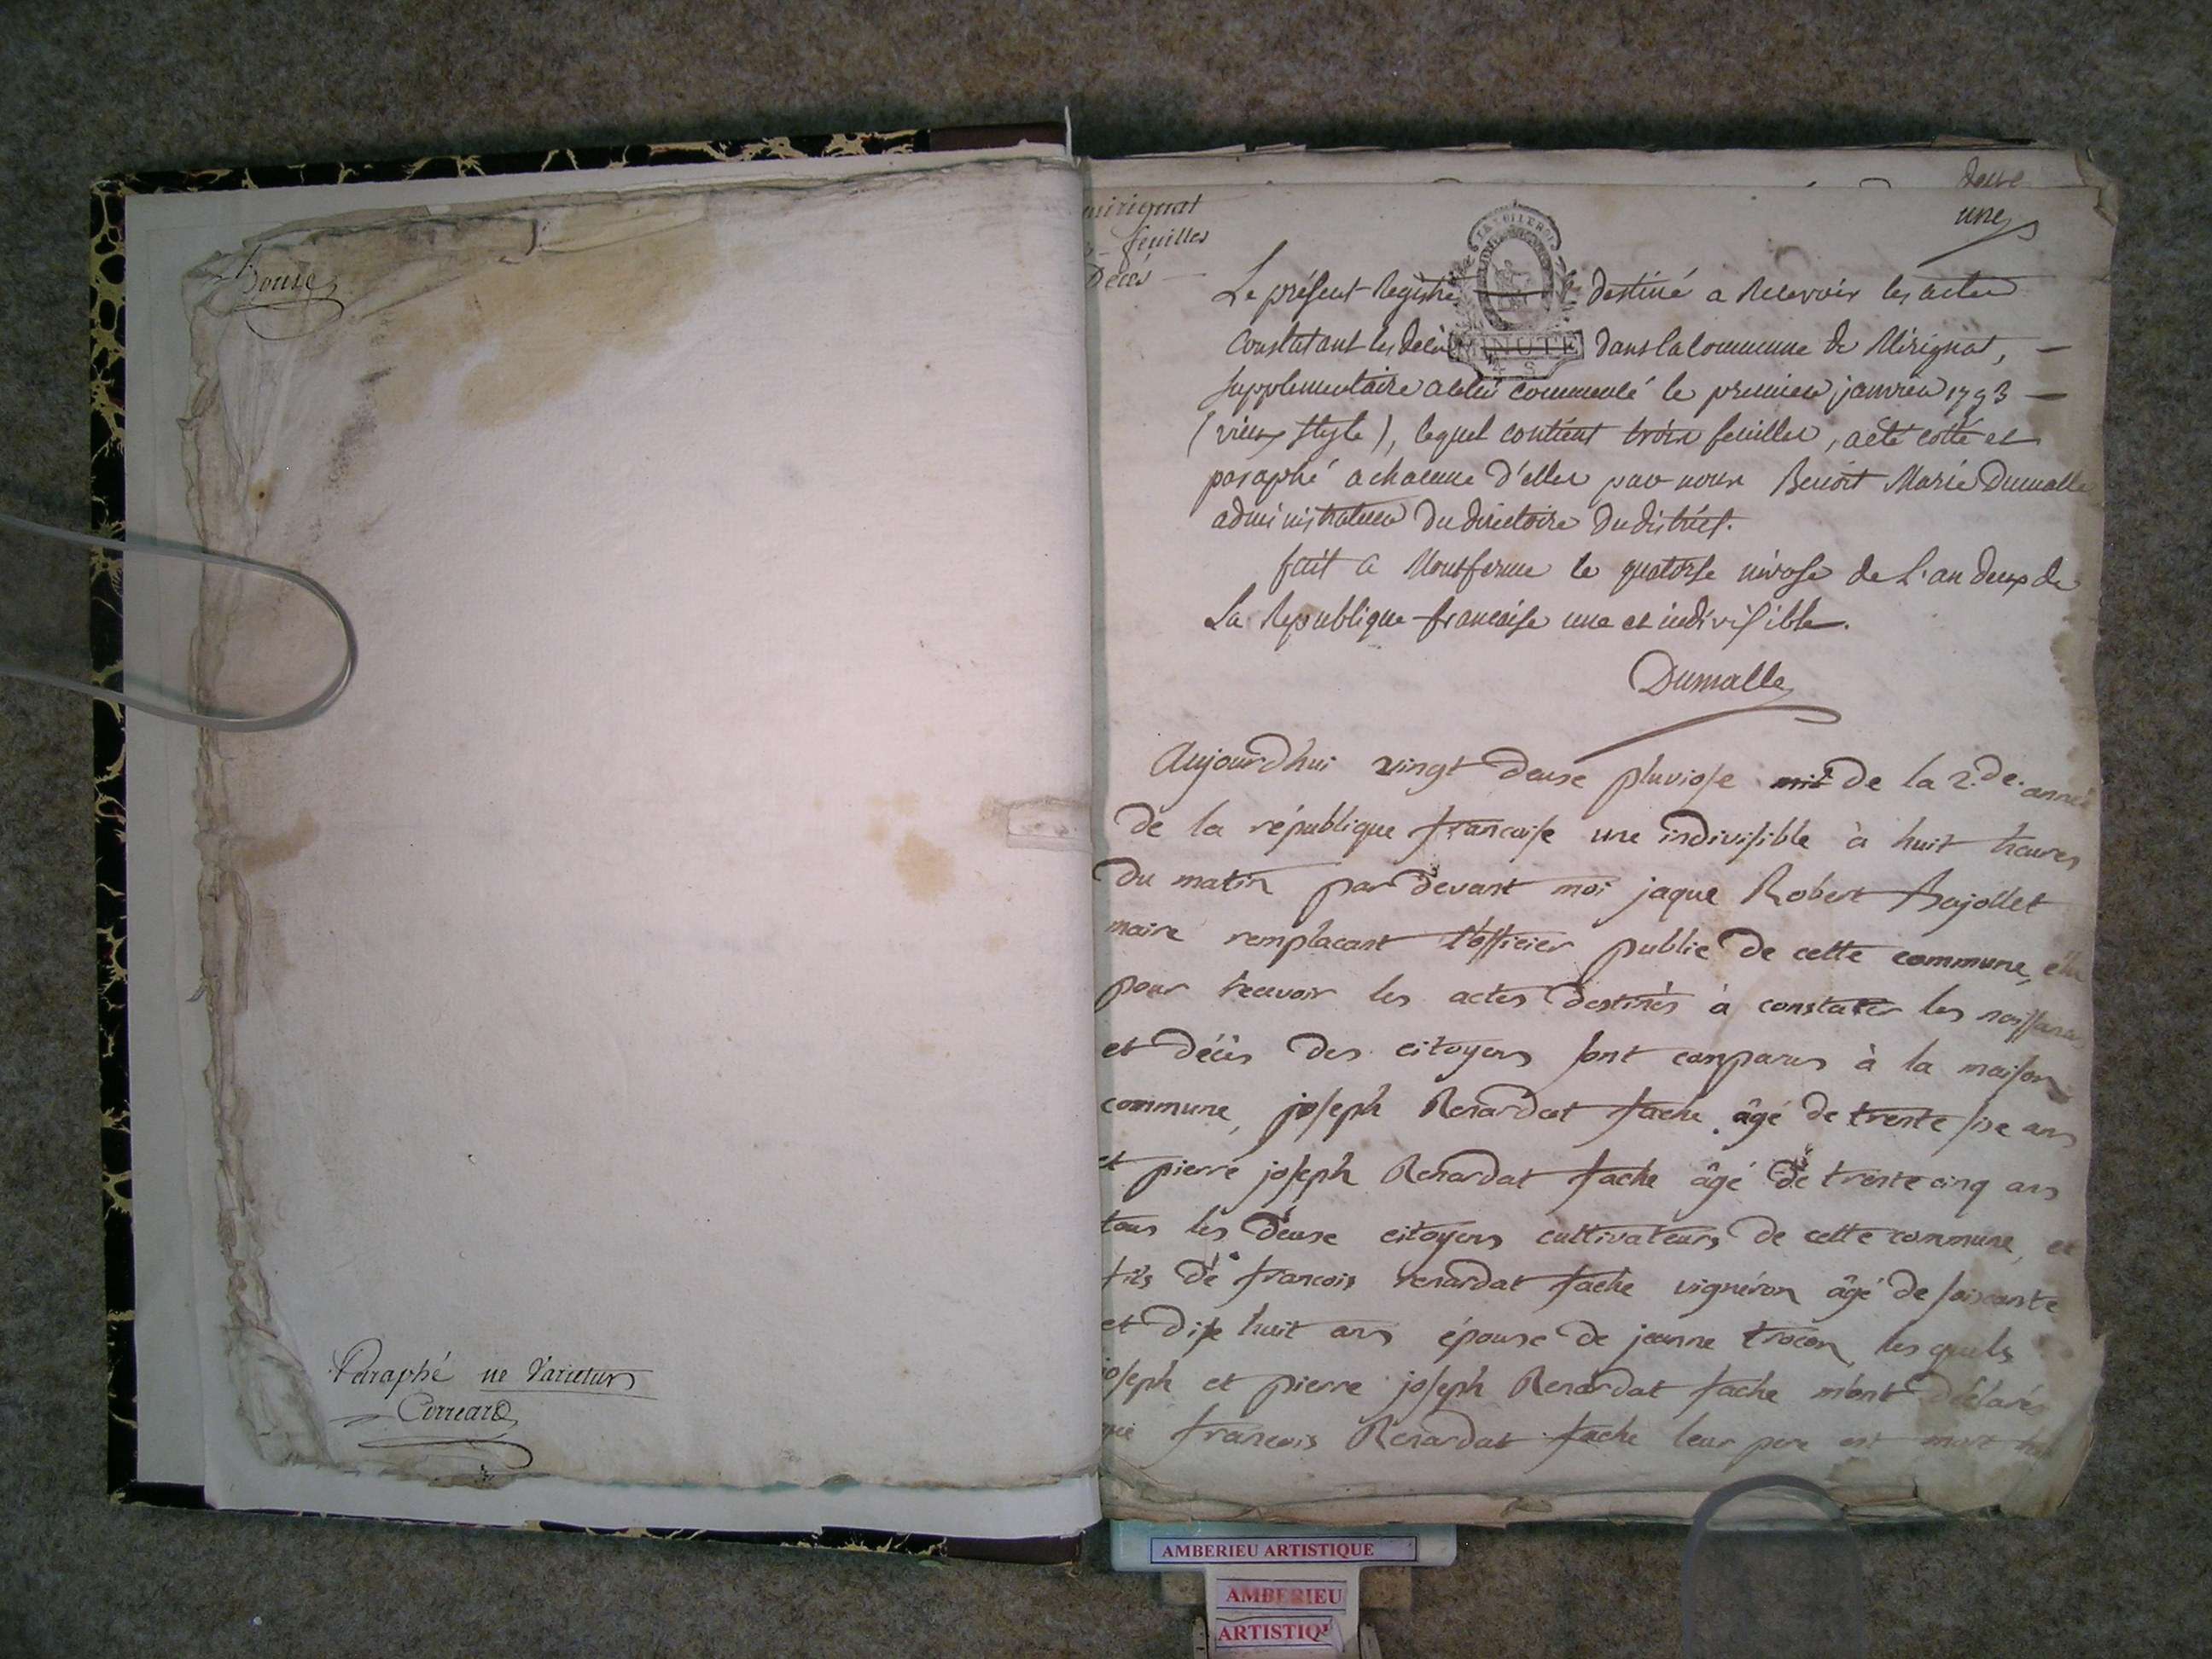 Douze
Paraphé ne Varietur
Correard
mirignat
feuilles
Décès
deux
une
Le présent Registre destiné a Recevoir les actes
Constatant les décès dans la Commune de Mirignat,
supplementaire a celui commencé le premier janvier 1793
(vieux style), lequel contient trois feuilles, a été cotté et
paraphé a chacune d'elles par nous Benoit Marie Dumalle
administrateur du directoire du district.
fait a Montferme le quatorse nivose de L'an deux de
La Republique francaise une et indivisible.
Dumalle
MINUTE
Aujourd'hui vingt deuxe pluviose de la 2.de. année
de la république francaise une indivisible à huit heures
du matin par devant moi jaque Robert Bajollet
maire remplacant l'officier public de cette commune, élu
pour recevoir les actes destinés à constater les naissances
et décès des citoyens sont comparus à la maison
commune, joseph Renardat fache âgé de trente sixe ans
et pierre joseph Renardat fache âgé de trente cinq ans
tous les deuxe citoyens cultivateurs de cette commune, et
fils de francois renardat fache vignéron âgé de soixante
et dix huit ans épouse de jeanne trocon, les quels
joseph et pierre joseph Renardat fache m'ont déclarés
que francois Renardat fache leur pere est mort
MINUTE
AMBERIEU ARTISTIQUE
AMBERIEU
ARTISTIQU